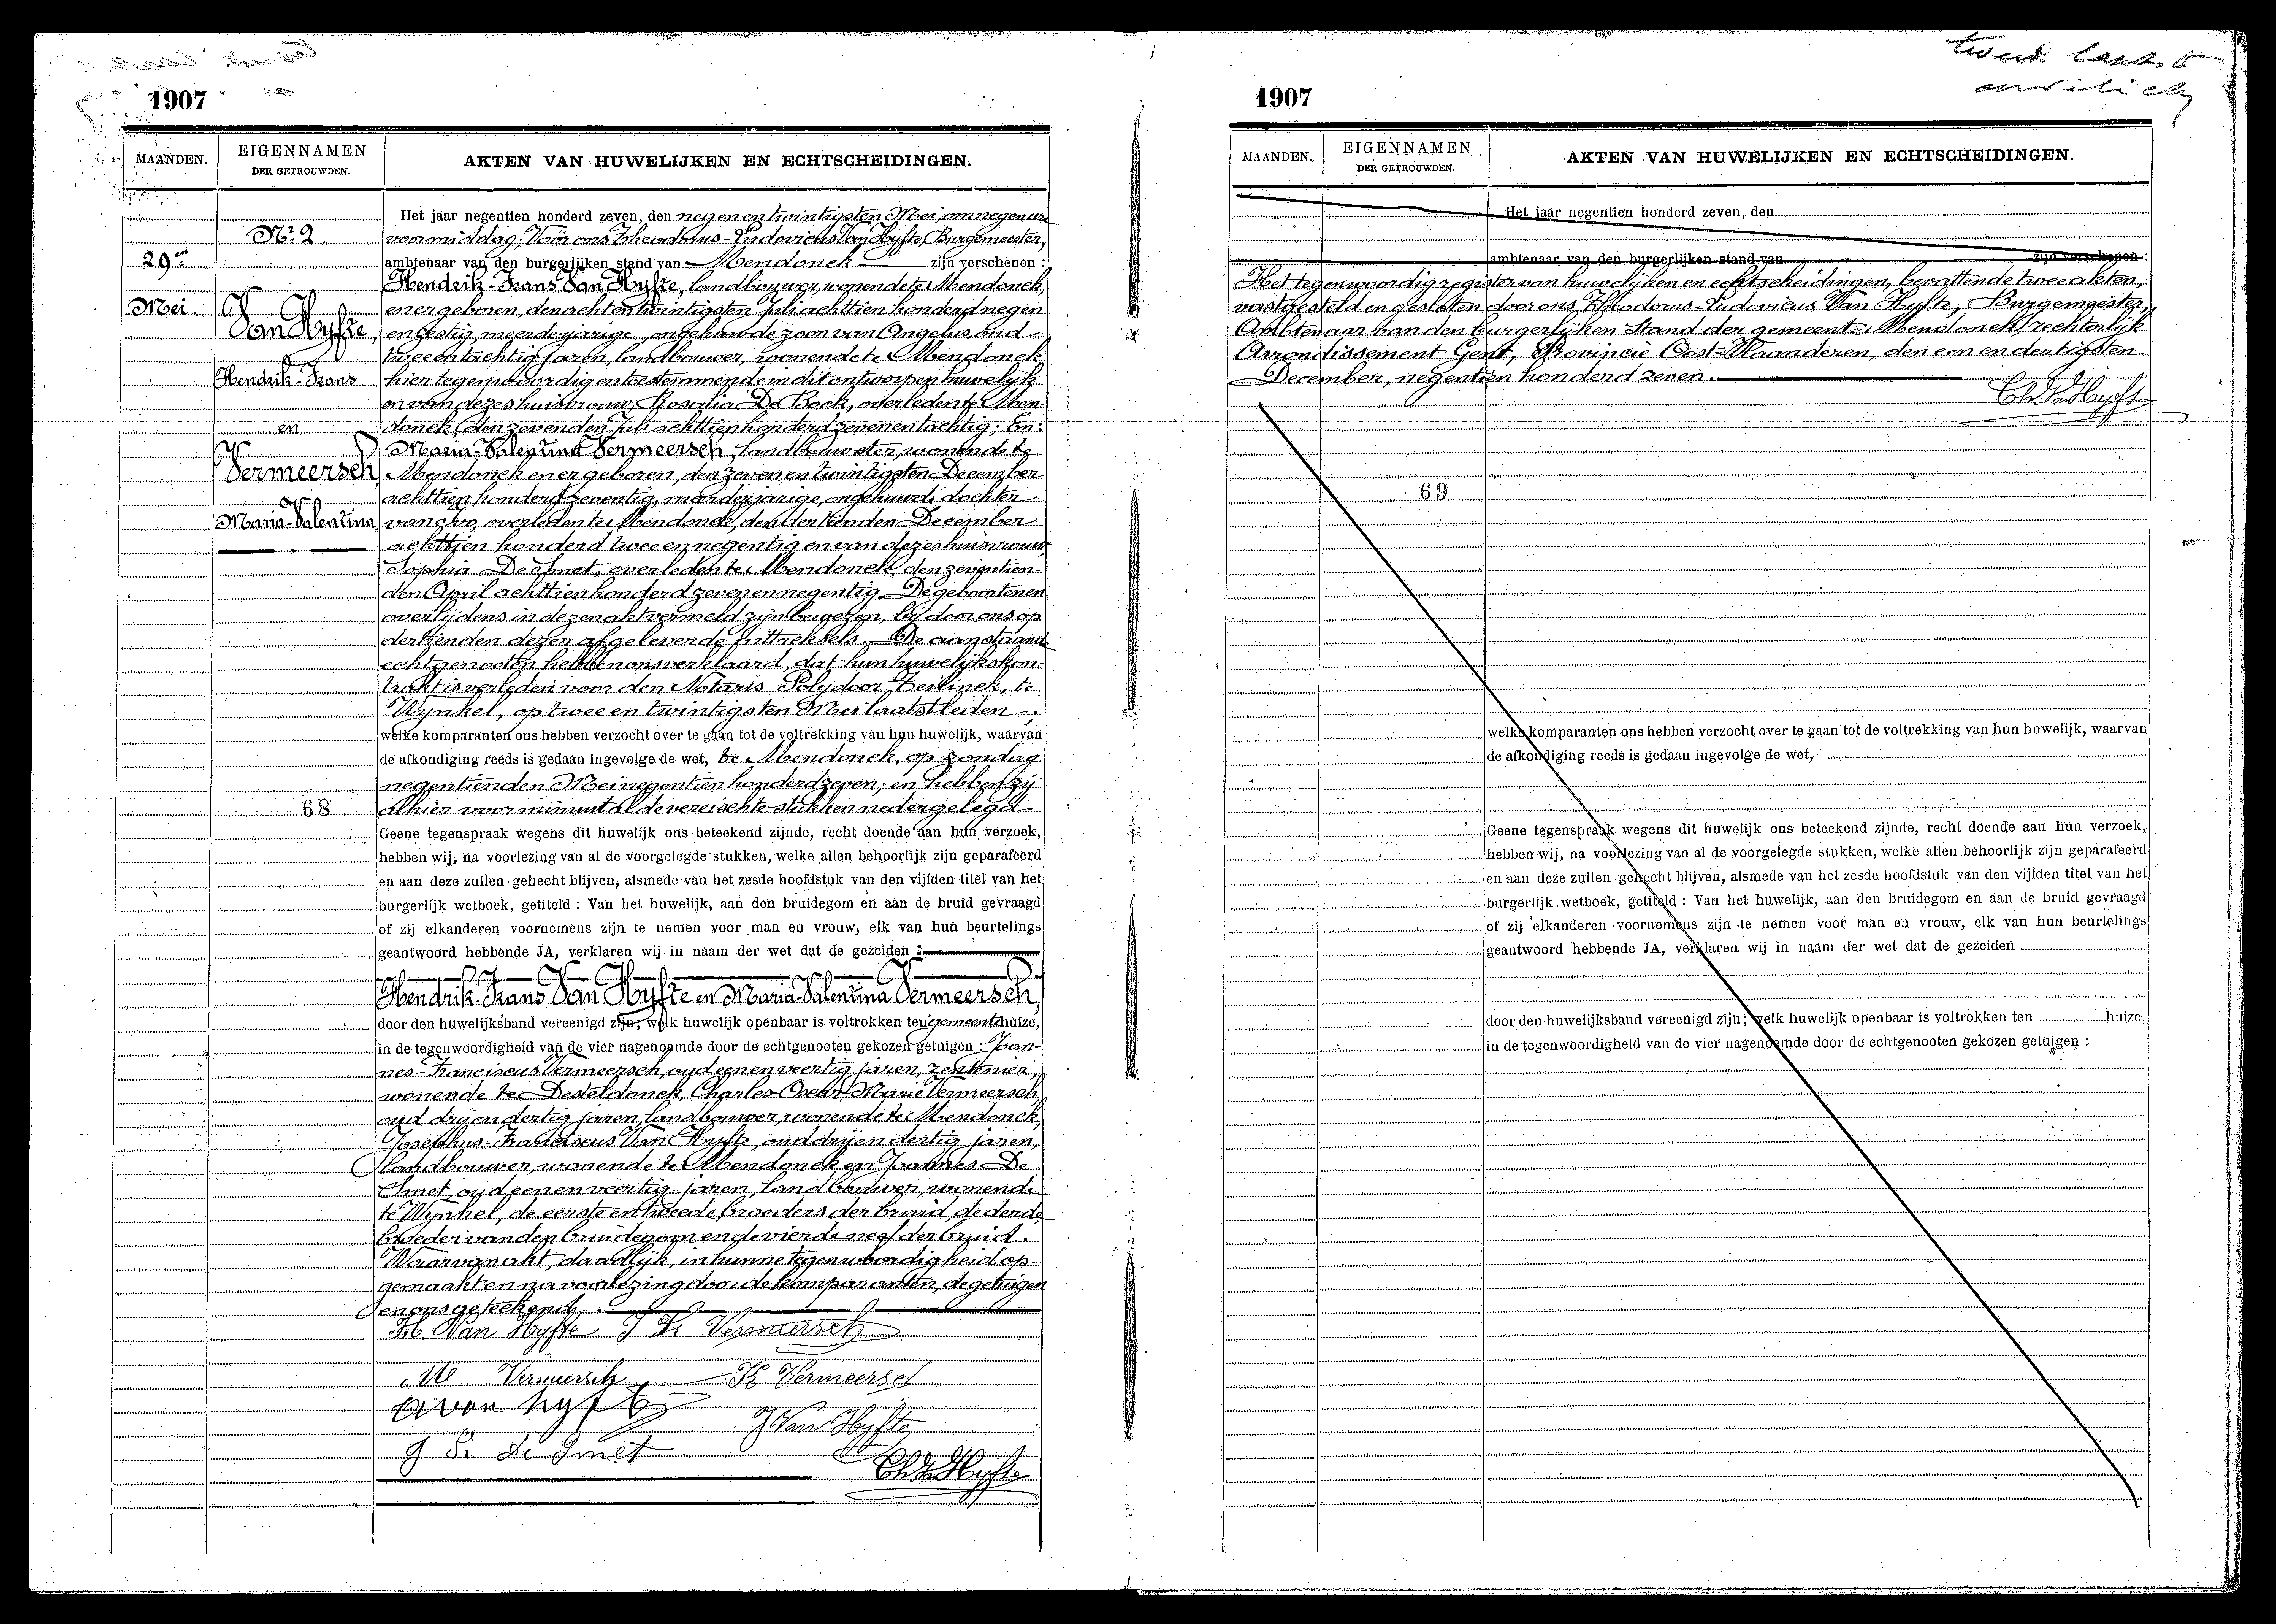 1907
MAANDEN.
EIGENNAMEN
DER GETROUWDEN.
AKTEN VAN HUWELIJKEN EN ECHTSCHEIDINGEN.
Nr 2
29en
Mei
Van Hyfte,
Hendrik-Frans
en
Vermeersch,
Maria-Valentina
68
Het jaar negentien honderd zeven, den negen en twintigsten Mei, om negen ure
voormiddag; Vóór ons Theodorus-Ludovicus Van Hyfte, Burgemeester,
ambtenaar van den burgerlijken stand van Mendonck zijn verschenen :
Hendrik-Frans Van Hyfte, landbouwer, wonende te Mendonck,
en er geboren, den acht en twintigsten Juli achttien honderd negen
en zestig, meerderjarige, ongehuwde zoon van Angelus, oud
twee en tachtig jaren, landbouwer, wonende te Mendonck,
hier tegenwoordig en toestemmende in dit ontworpen huwelijk
en van dezes huisvrouw, Rosalia De Bock, overleden te Men-
donck, den zevenden Juli achttien honderd zeven en tachtig; En:
Maria-Valentina Vermeersch, landbouwster, wonende te
Mendonck en er geboren, den zeven en twintigsten December
achttien honderd zeventig, meerderjarige, ongehuwde dochter
van overleden te Mendonck, den dertienden December
achttien honderd twee en negentig en van dezes huisvrouw,
Sophia De Smet, overleden te Mendonck, den zeventien-
den April achttien honderd zeven en negentig. De geboorten en
overlijdens in dezen akt vermeld zijn bewezen, bij door ons op
dertienden dezer afgeleverde uittreksels. De aanstaande
echtgenooten hebben ons verklaard, dat hun huwelijkskon-
trakt is verleden voor den Notaris Polydoor te
Wynkel, op twee en twintigsten Mei laatstleden ;
welke komparanten ons hebben verzocht over te gaan tot de voltrekking van hun huwelijk, waarvan
de afkondiging reeds is gedaan ingevolge de wet, te Mendonck, op zondag
negentienden Mei negentien honderd zeven; en hebben zij
alhier voor minuut al de vereischte stukken nedergelegd.
Geene tegenspraak wegens dit huwelijk ons beteekend zijnde, recht doende aan hun verzoek,
hebben wij, na voorlezing van al de voorgelegde stukken, welke allen behoorlijk zijn geparafeerd
en aan deze zullen gehecht blijven, alsmede van het zesde hoofdstuk van den vijfden titel van het
burgerlijk wetboek, getiteld : Van het huwelijk, aan den bruidegom en aan de bruid gevraagd
of zij elkanderen voornemens zijn te nemen voor man en vrouw, elk van hun beurtelings
geantwoord hebbende JA, verklaren wij in naam der wet dat de gezeiden :
Hendrik-Frans Van Hyfte en Maria-Valentina Vermeersch,
door den huwelijksband vereenigd zijn; welk huwelijk openbaar is voltrokken ten gemeentehuize,
in de tegenwoordigheid van de vier nagenoemde door de echtgenooten gekozen getuigen : Joan-
nes-Franciscus Vermeersch, oud een en veertig jaren, rentenier,
wonende te Desteldonck, Charles-Oscar-Marie Vermeersch,
oud drij en dertig jaren, landbouwer, wonende te Mendonck,
Josephus-Franciscus Van Hyfte, oud drij en dertig jaren,
landbouwer, wonende te Mendonck en Joannes De
Smet, oud een en veertig jaren, landbouwer, wonende
te Wynkel, de eerste en tweede broeders der bruid, de derde
broeder van den bruidegom en de vierde neef der bruid.
Waarvan akt, daadlijk, in hunne tegenwoordigheid op-
gemaakt en na voorlezing door de komparanten, de getuigen
en ons geteekend.
Van Hyfte J Fr Vermeersch
M Vermeersch K Vermeersch
A van hyfte
J Van Hyfte
J Fr de Smet
Th. L. Van Hyfte
1907
MAANDEN.
EIGENNAMEN
DER GETROUWDEN.
AKTEN VAN HUWELIJKEN EN ECHTSCHEIDINGEN.
Het jaar negentien honderd zeven, den
ambtenaar van den burgerlijken stand van zijn verschenen :
Het tegenwoordig register van huwelijken en echtscheidingen, bevattende twee akten,
vastgesteld en gesloten door ons, Theodorus-Ludovicus Van Hyfte, Burgemeester,
Ambtenaar van den burgerlijken Stand der gemeente Mendonck, rechterlijk
Arrondissement Gent, Provincie Oost-Vlaanderen, den een en dertigsten
December, negentien honderd zeven.
Th. L. Van Hyfte
69
welke komparanten ons hebben verzocht over te gaan tot de voltrekking van hun huwelijk, waarvan
de afkondiging reeds is gedaan ingevolge de wet,
Geene tegenspraak wegens dit huwelijk ons beteekend zijnde, recht doende aan hun verzoek,
hebben wij, na voorlezing van al de voorgelegde stukken, welke allen behoorlijk zijn geparafeerd
en aan deze zullen gehecht blijven, alsmede van het zesde hoofdstuk van den vijfden titel van het
burgerlijk wetboek, getiteld : Van het huwelijk, aan den bruidegom en aan de bruid gevraagd
of zij elkanderen voornemens zijn te nemen voor man en vrouw, elk van hun beurtelings
geantwoord hebbende JA, verklaren wij in naam der wet dat de gezeiden
door den huwelijksband vereenigd zijn; welk huwelijk openbaar is voltrokken ten huize,
in de tegenwoordigheid van de vier nagenoemde door de echtgenooten gekozen getuigen :